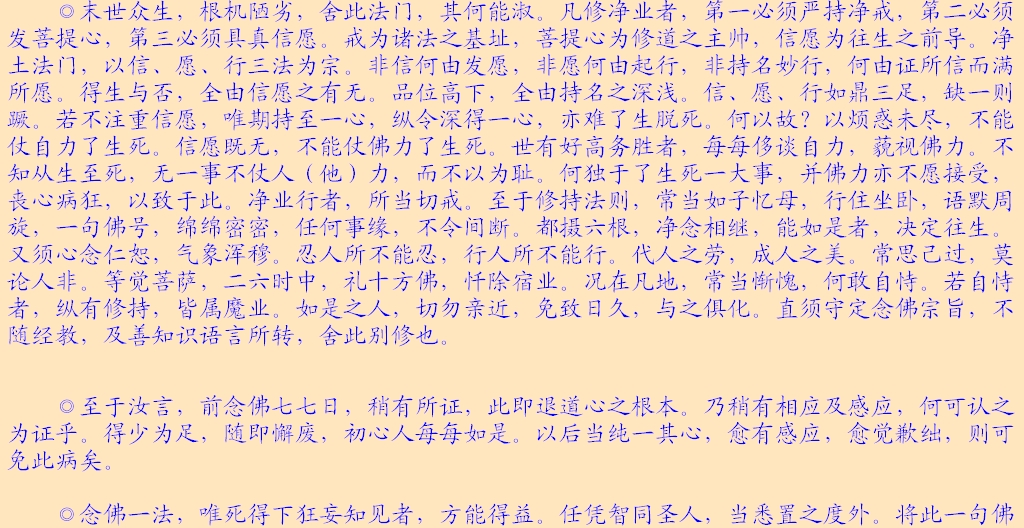 ◎末世众生，根机陋劣，舍此法门，其何能淑。凡修净业者，第一必须严持净戒，第二必须
发菩提心，第三必须具真信愿。戒为诸法之基址，菩提心为修道之主帅，信愿为往生之前导。净
土法门，以信、愿、行三法为宗。非信何由发愿，非愿何由起行，非持名妙行，何由证所信而满
所愿。得生与否，全由信愿之有无。品位高下，全由持名之深浅。信、愿、行如鼎三足，缺一则
蹶。若不注重信愿，唯期持至一心，纵令深得一心，亦难了生脱死。何以故？以烦惑未尽，不能
仗自力了生死。信愿既无，不能仗佛力了生死。世有好高务胜者，每每侈谈自力，藐视佛力。不
知从生至死，无一事不仗人（他）力，而不以为耻。何独于了生死一大事，并佛力亦不愿接受，
丧心病狂，以致于此。净业行者，所当切戒。至于修持法则，常当如子忆母，行住坐卧，语默周
旋，一句佛号，绵绵密密，任何事缘，不令间断。都摄六根，净念相继，能如是者，决定往生。
又须心念仁恕，气象浑穆。忍人所不能忍，行人所不能行。代人之劳，成人之美。常思己过，莫
论人非。等觉菩萨，二六时中，礼十方佛，忏除宿业。况在凡地，常当惭愧，何敢自恃。若自恃
者，纵有修持，皆属魔业。如是之人，切勿亲近，免致日久，与之俱化。直须守定念佛宗旨，不
随经教，及善知识语言所转，舍此别修也。
◎至于汝言，前念佛七七日，稍有所证，此即退道心之根本。乃稍有相应及感应，何可认之
为证乎。得少为足，随即懈废，初心人每每如是。以后当纯一其心，愈有感应，愈觉歉绌，则可
免此病矣。
◎念佛一法，唯死得下狂妄知见者，方能得益。任凭智同圣人，当悉置之度外。将此一句佛